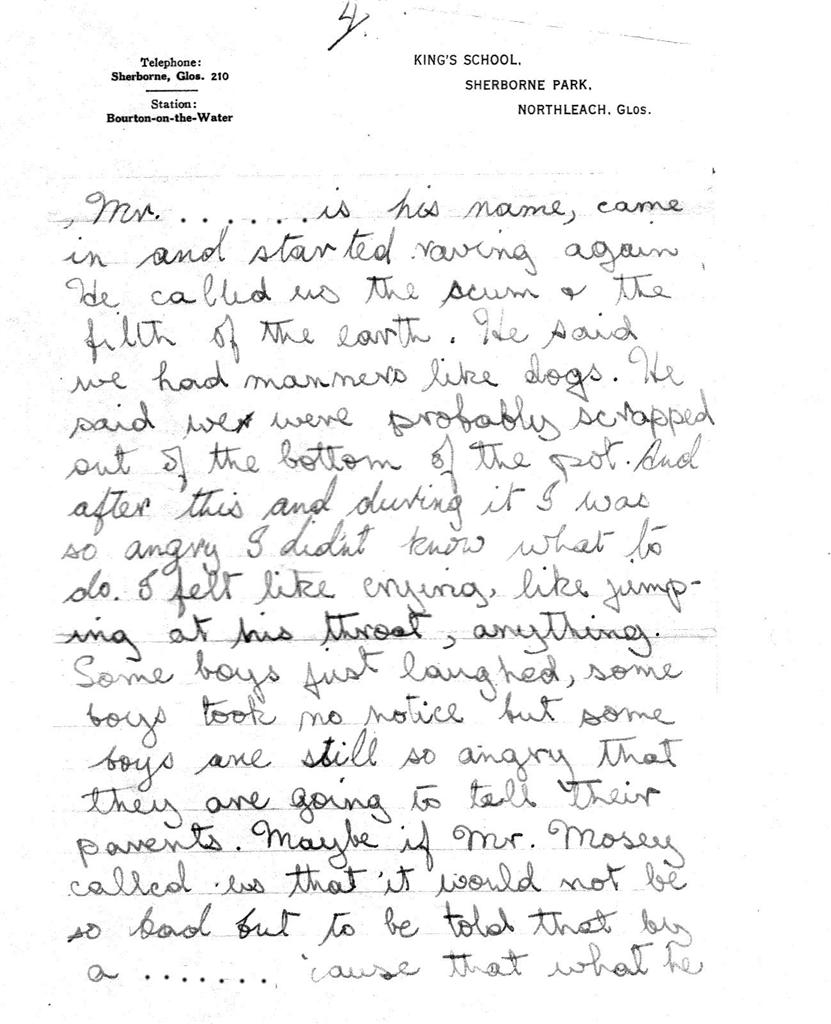 4.
Telephone:
Sherborne, Glos. 210
Station:
Bourton-on-the-Water
KING'S SCHOOL,
SHERBORNE PARK,
NORTHLEACH, GLOS.
, Mr. . . . . . . is his name, came
in and started raving again
He called us the scum & the
filth of the earth. He said
we had manners like dogs. He
said we were probably scrapped
out of the bottom of the pot. And
after this and during it I was
so angry I didn't know what to
do. I felt like crying, like jump-
ing at his throat, anything.
Some boys just laughed, some
boys took no notice but some
boys are still so angry that
they are going to tell their
parents. Maybe if Mr. Mosey
called us that it would not be
so bad but to be told that by
a . . . . . . . 'cause that what he